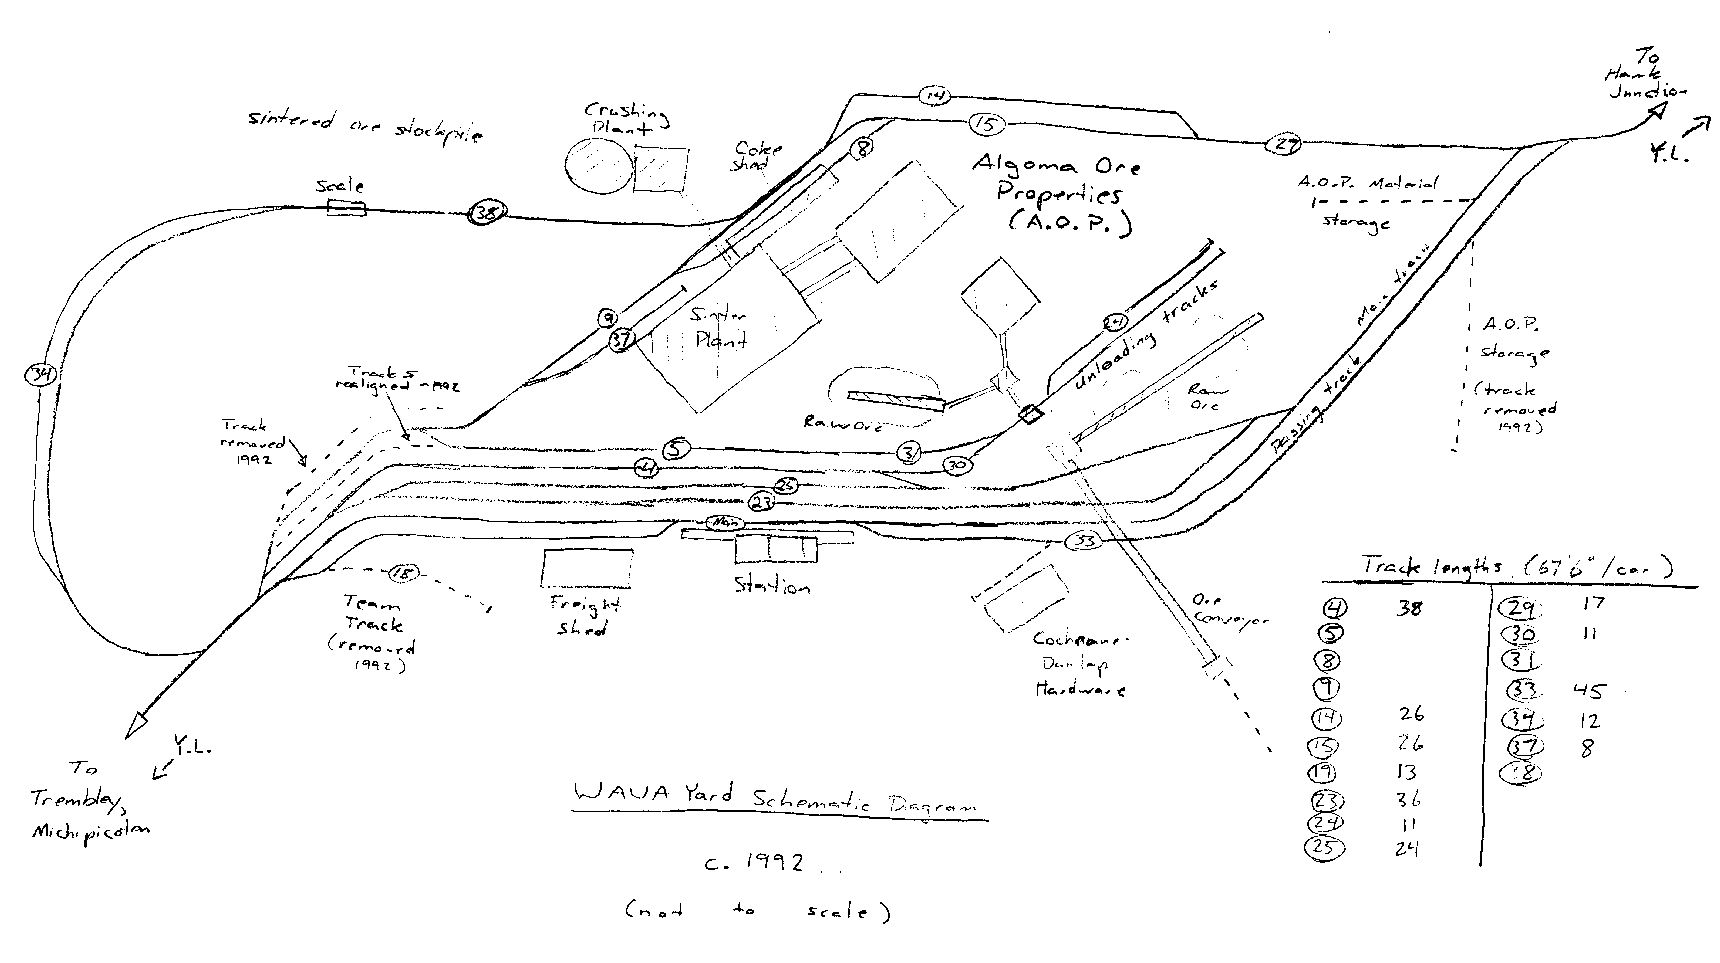 To
Hawk
Junction
Y.L.
14
15
29
Crushing
Plant
Sintered ore stockpile
Coke
Shed
8
Algoma Ore
Properties
(A.O.P.)
A.O.P. Material
storage
Scale
38
Main track
A.O.P.
Storage
(track
removed
1992)
9
37
Sinter
Plant
24
Unloading tracks
34
Track 5
realigned ~1992
Raw
Ore
Raw Ore
Passing track
Track
removed
1992
5
31
4
30
25
23
Main
33
18
Station
Freight
Shed
Team
Track
(removed
1992)
Ore
Conveyor
Cochrane-
Dunlap
Hardware
Track lengths (57'6"/car)
4 38
5
8
9
14 26
15 26
19 13
23 36
24 11
25 24
29 17
30 11
31
33 45
34 12
37 8
38
Y.L.
To
Trembley,
Michipicoten
WAWA Yard Schematic Diagram
c. 1992
(not to scale)